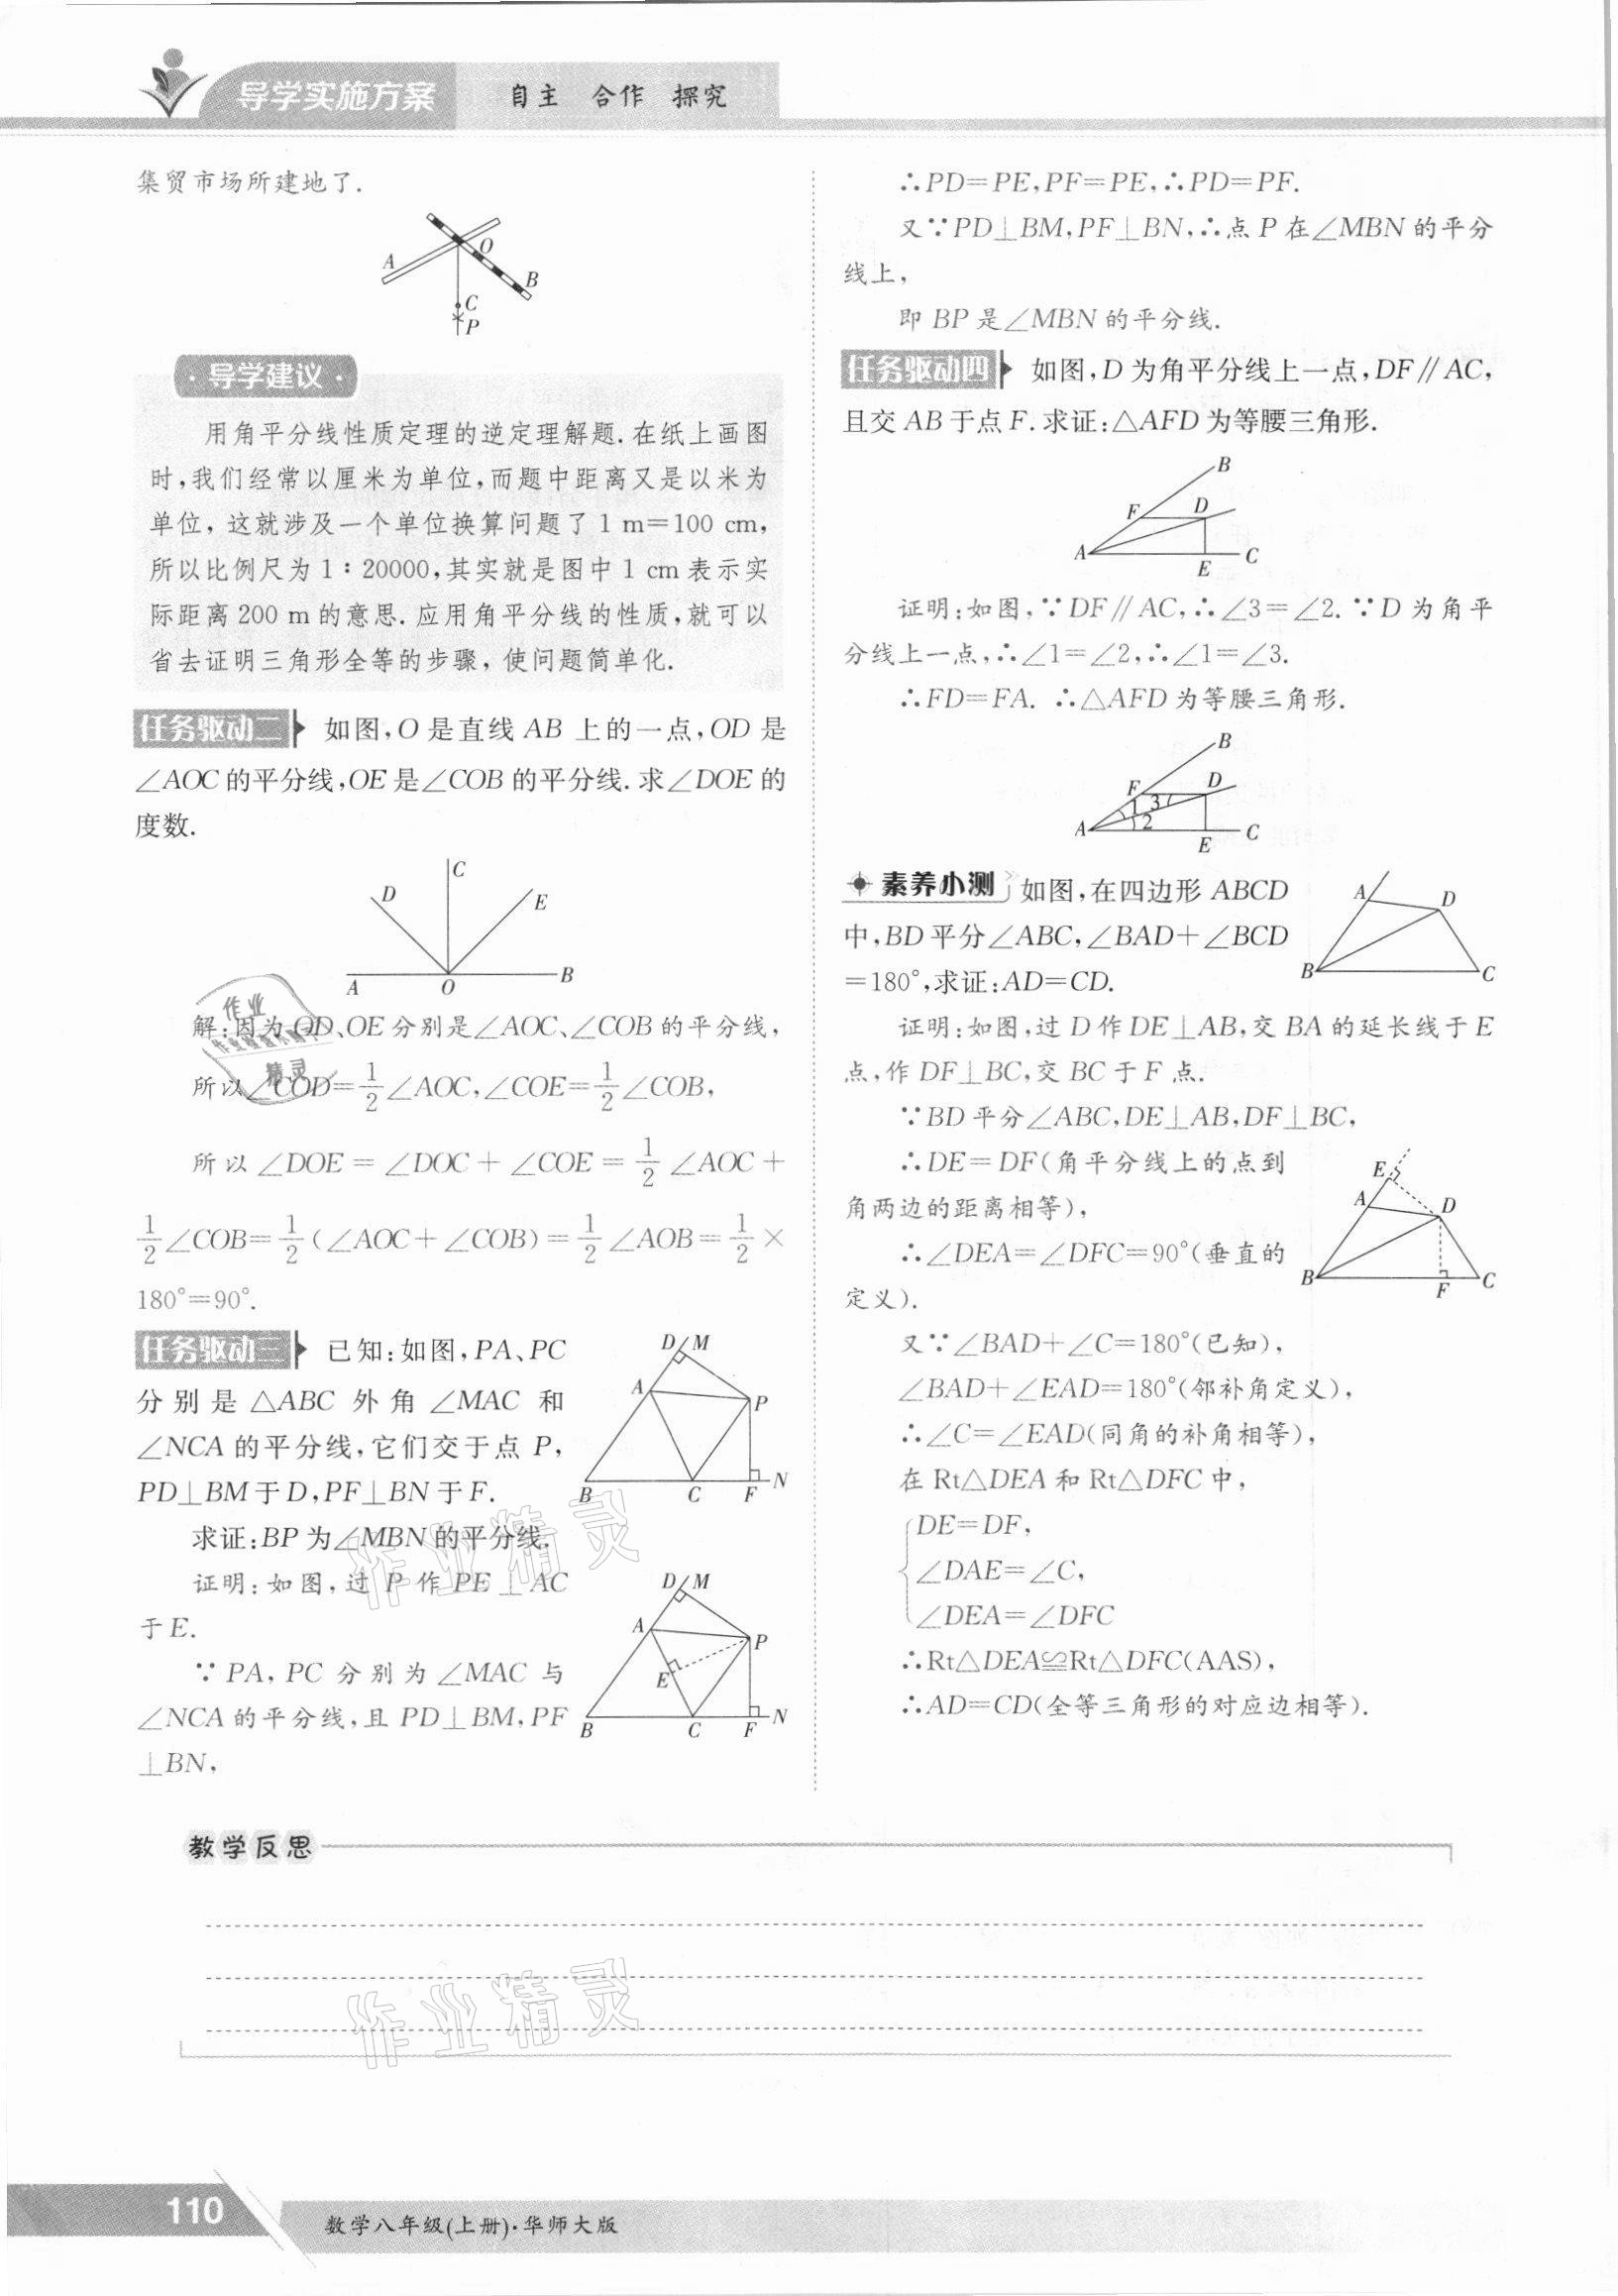 导学实施方案 自主 合作 探究
集贸市场所建地了.
A O B C P
·导学建议·
用角平分线性质定理的逆定理解题.在纸上画图
时,我们经常以厘米为单位,而题中距离又是以米为
单位,这就涉及一个单位换算问题了 1 m=100 cm,
所以比例尺为 1∶20000,其实就是图中 1 cm 表示实
际距离 200 m 的意思.应用角平分线的性质,就可以
省去证明三角形全等的步骤,使问题简单化.
任务驱动二 如图,O 是直线 AB 上的一点,OD 是
∠AOC 的平分线,OE 是∠COB 的平分线.求∠DOE 的
度数.
D C E A O B
解:因为 OD、OE 分别是∠AOC、∠COB 的平分线,
所以∠COD=1/2∠AOC,∠COE=1/2∠COB,
所以∠DOE=∠DOC+∠COE=1/2∠AOC+
1/2∠COB=1/2(∠AOC+∠COB)=1/2∠AOB=1/2×
180°=90°.
任务驱动三 已知:如图,PA、PC
分别是△ABC 外角∠MAC 和
∠NCA 的平分线,它们交于点 P,
PD⊥BM 于 D,PF⊥BN 于 F.
D M A P B C F N
求证:BP 为∠MBN 的平分线.
证明:如图,过 P 作 PE⊥AC
于 E.
∵PA,PC 分别为∠MAC 与
∠NCA 的平分线,且 PD⊥BM,PF
⊥BN,
D M A P E B C F N
∴PD=PE,PF=PE,∴PD=PF.
又∵PD⊥BM,PF⊥BN,∴点 P 在∠MBN 的平分
线上,
即 BP 是∠MBN 的平分线.
任务驱动四 如图,D 为角平分线上一点,DF∥AC,
且交 AB 于点 F.求证:△AFD 为等腰三角形.
B F D A E C
证明:如图,∵DF∥AC,∴∠3=∠2.∵D 为角平
分线上一点,∴∠1=∠2,∴∠1=∠3.
∴FD=FA. ∴△AFD 为等腰三角形.
B F D 1 3 2 A E C
素养小测 如图,在四边形 ABCD
中,BD 平分∠ABC,∠BAD+∠BCD
=180°,求证:AD=CD.
A D B C
证明:如图,过 D 作 DE⊥AB,交 BA 的延长线于 E
点,作 DF⊥BC,交 BC 于 F 点.
∵BD 平分∠ABC,DE⊥AB,DF⊥BC,
∴DE=DF(角平分线上的点到
角两边的距离相等),
∴∠DEA=∠DFC=90°(垂直的
定义).
E A D B F C
又∵∠BAD+∠C=180°(已知),
∠BAD+∠EAD=180°(邻补角定义),
∴∠C=∠EAD(同角的补角相等),
在 Rt△DEA 和 Rt△DFC 中,
DE=DF,
∠DAE=∠C,
∠DEA=∠DFC
∴Rt△DEA≌Rt△DFC(AAS),
∴AD=CD(全等三角形的对应边相等).
教学反思
作业精灵
作业精灵
作业
精灵
110
数学八年级(上册)·华师大版